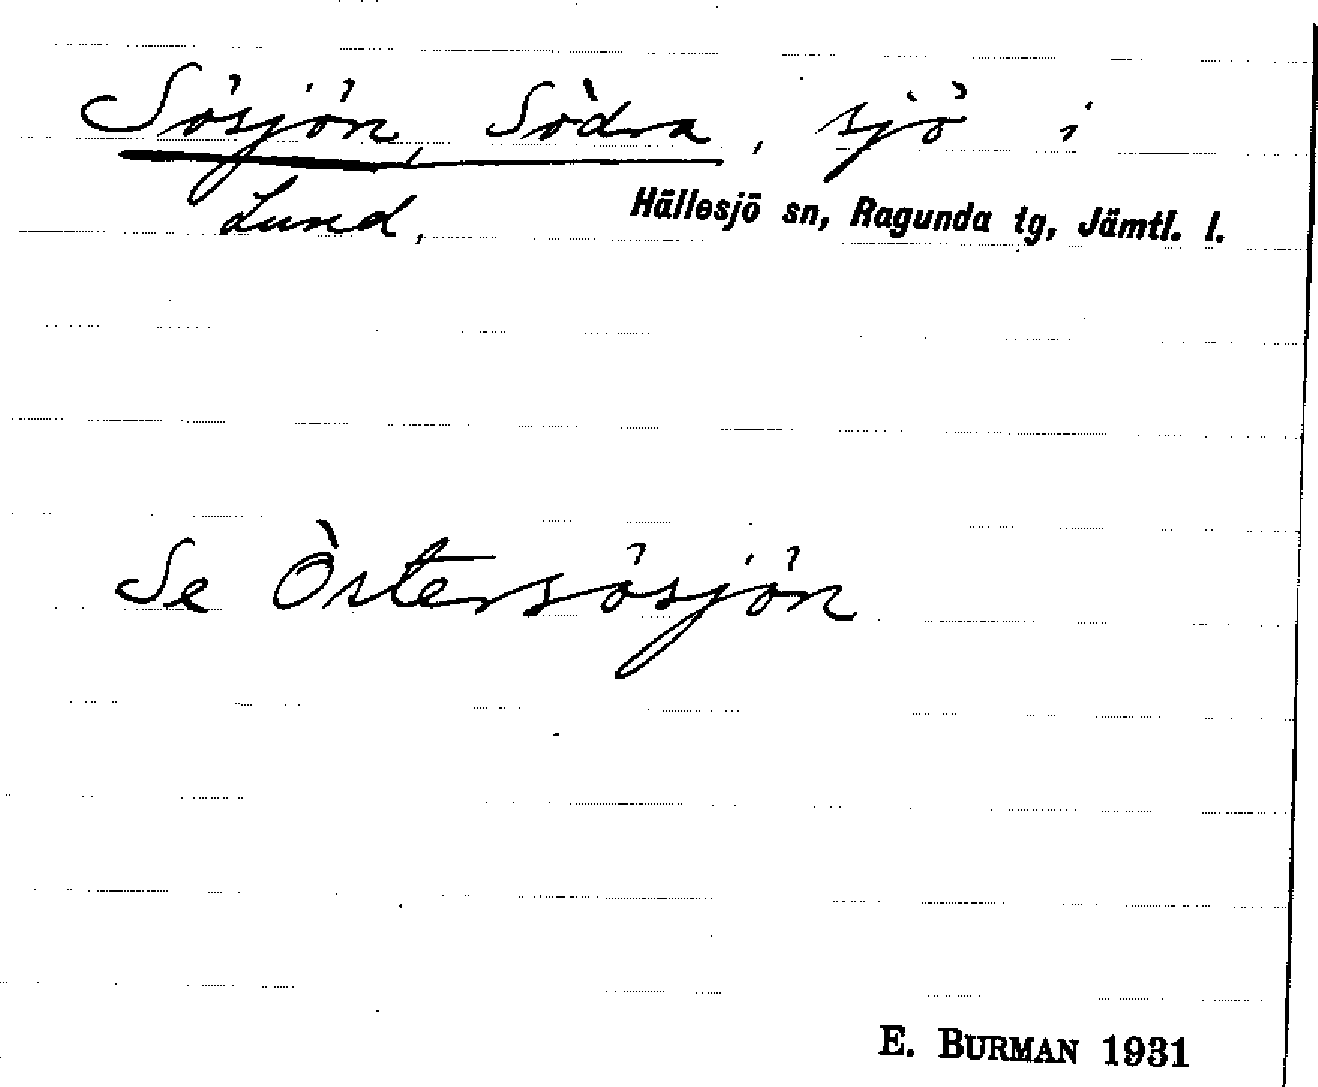 Sösjön, Södra, sjö i
Lund, Hällesjö sn, Ragunda tg, Jämtl. l.
Se Östersösjön
E. BURMAN 1931